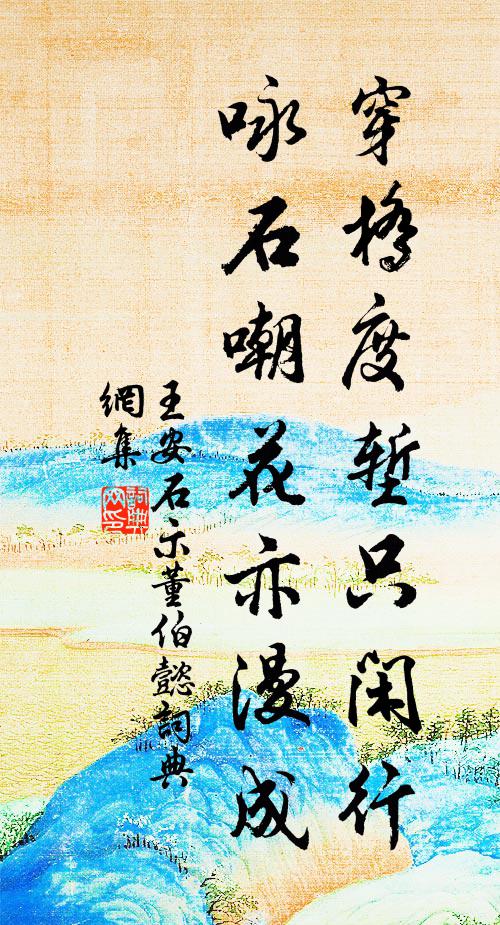 穿橋度塹只閑行
咏石嘲花亦漫成
王安石示董伯懿詞典
網集
詞典
网印